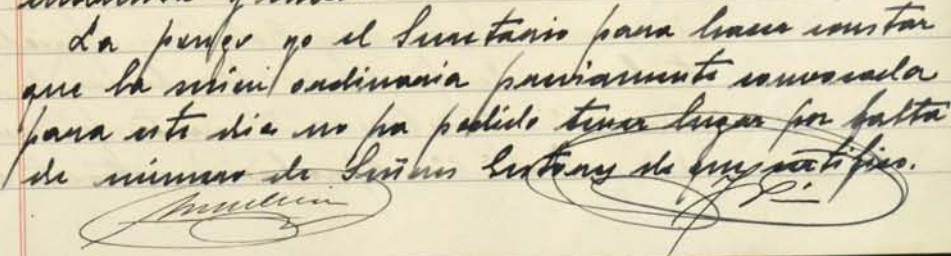 La pongo yo el Secretario para hacer constar
que la sesión ordinaria previamente convocada
para este dia no ha podido tener lugar por falta
de número de Señores Gestores de que certifico.